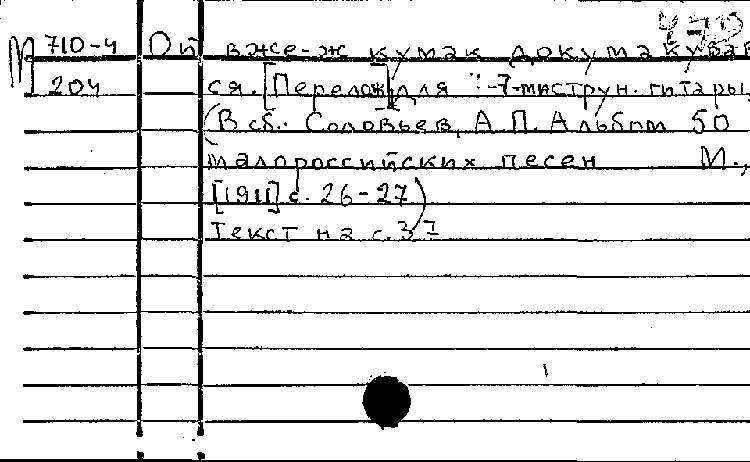 М 710-4 Ой вже-ж кумак докумакував
204 ся. [Перелож.] для 7-миструн. гитары.
(В сб.: Соловьев, А.П. Альбом 50
малороссийских песен М.,
[1911] с. 26-27)
Текст на с. 37